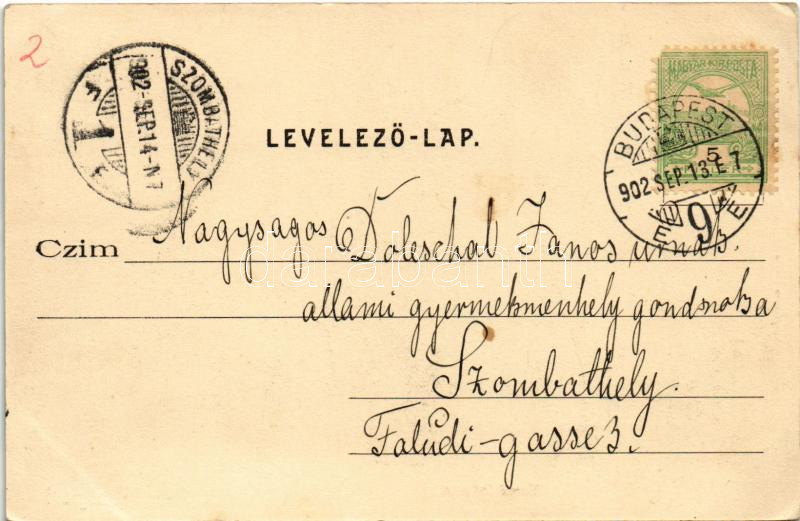 2
SZOMBATHELY
902-SEP.14-N7
F 1
MAGYAR KIR. POSTA
5
BUDAPEST
902 SEP.13.E7
9
LEVELEZŐ-LAP.
Czim Nagysagos Doleschal Janos urnak.
allami gyermekmenhely gondnoka
Szombathely.
Faludi-gasse 3.
darabanth